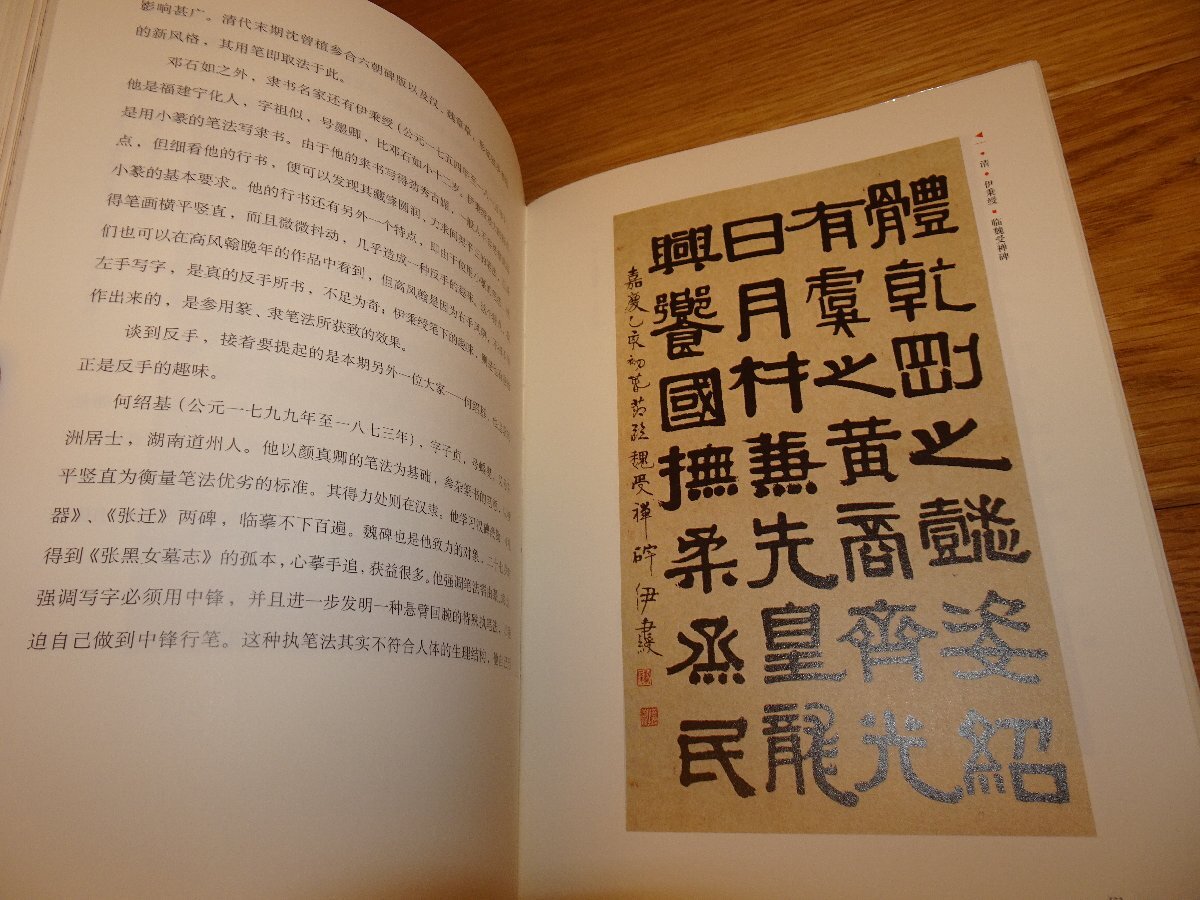 影响甚广。清代末期沈曾植参合六朝碑版以及汉、
的新风格，其用笔即取法于此。
邓石如之外，隶书名家还有伊秉绶（公元一七五四年至一八
他是福建宁化人，字祖似，号墨卿，比邓石如小十二岁。伊秉绶
是用小篆的笔法写隶书。由于他的隶书写得浩秀古媚，一般人不
点，但细看他的行书，便可以发现其藏锋圆润，
小篆的基本要求。他的行书还有另外一个特点，即由于
得笔画横平竖直，而且微微抖动，几乎造成一种反手的趣味。
们也可以在高风翰晚年的作品中看到，但高风翰是因为右手
左手写字，是真的反手所书，不足为奇；伊秉绶笔下的趣味，
作出来的，是参用篆、隶笔法所获致的效果。
谈到反手，接着要提起的是本期另外一位大家——何绍基，
正是反手的趣味。
何绍基（公元一七九九年至一八七三年），字子贞，号蝯叟，
洲居士，湖南道州人。他以颜真卿的笔法为基础，参杂篆书的
平竖直为衡量笔法优劣的标准。其得力处则在汉隶。他学习汉碑
器》、《张迁》两碑，临摹不下百遍。魏碑也是他致力的对象，二十
得到《张黑女墓志》的孤本，心摹手追，获益很多。他强调笔法
强调写字必须用中锋，并且进一步发明一种悬臂回腕的特殊执笔法，
迫自己做到中锋行笔。这种执笔法其实不符合人体的生理结构，
清·伊秉绶·临魏受禅碑
體乾剛之懿姿紹
有虞之黄裔齊光
日月材兼先皇龍
興饗國撫柔烝民
嘉慶乙亥初 魏受禅碑 伊秉綬